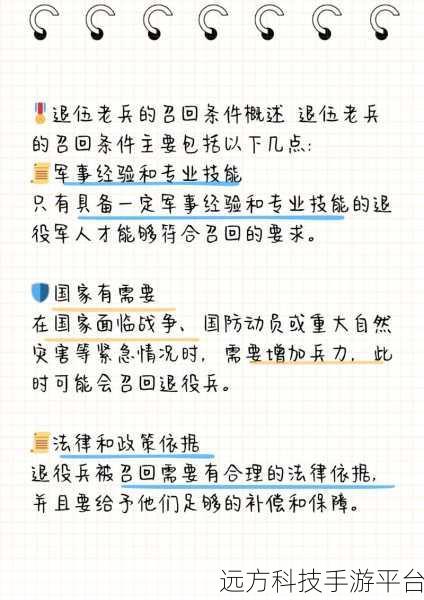 退伍老兵的召回条件概述 退伍老兵
的召回条件主要包括以下几点:
军事经验和专业技能
只有具备一定军事经验和专业技能的退
役军人才能够符合召回的要求。
国家有需要
在国家面临战争、国防动员或重大自然
灾害等紧急情况时,需要增加兵力,此
时可能会召回退役兵。
法律和政策依据
退役兵被召回需要有合理的法律依据,
并且要给予他们足够的补偿和保障。
远方科技手游平台